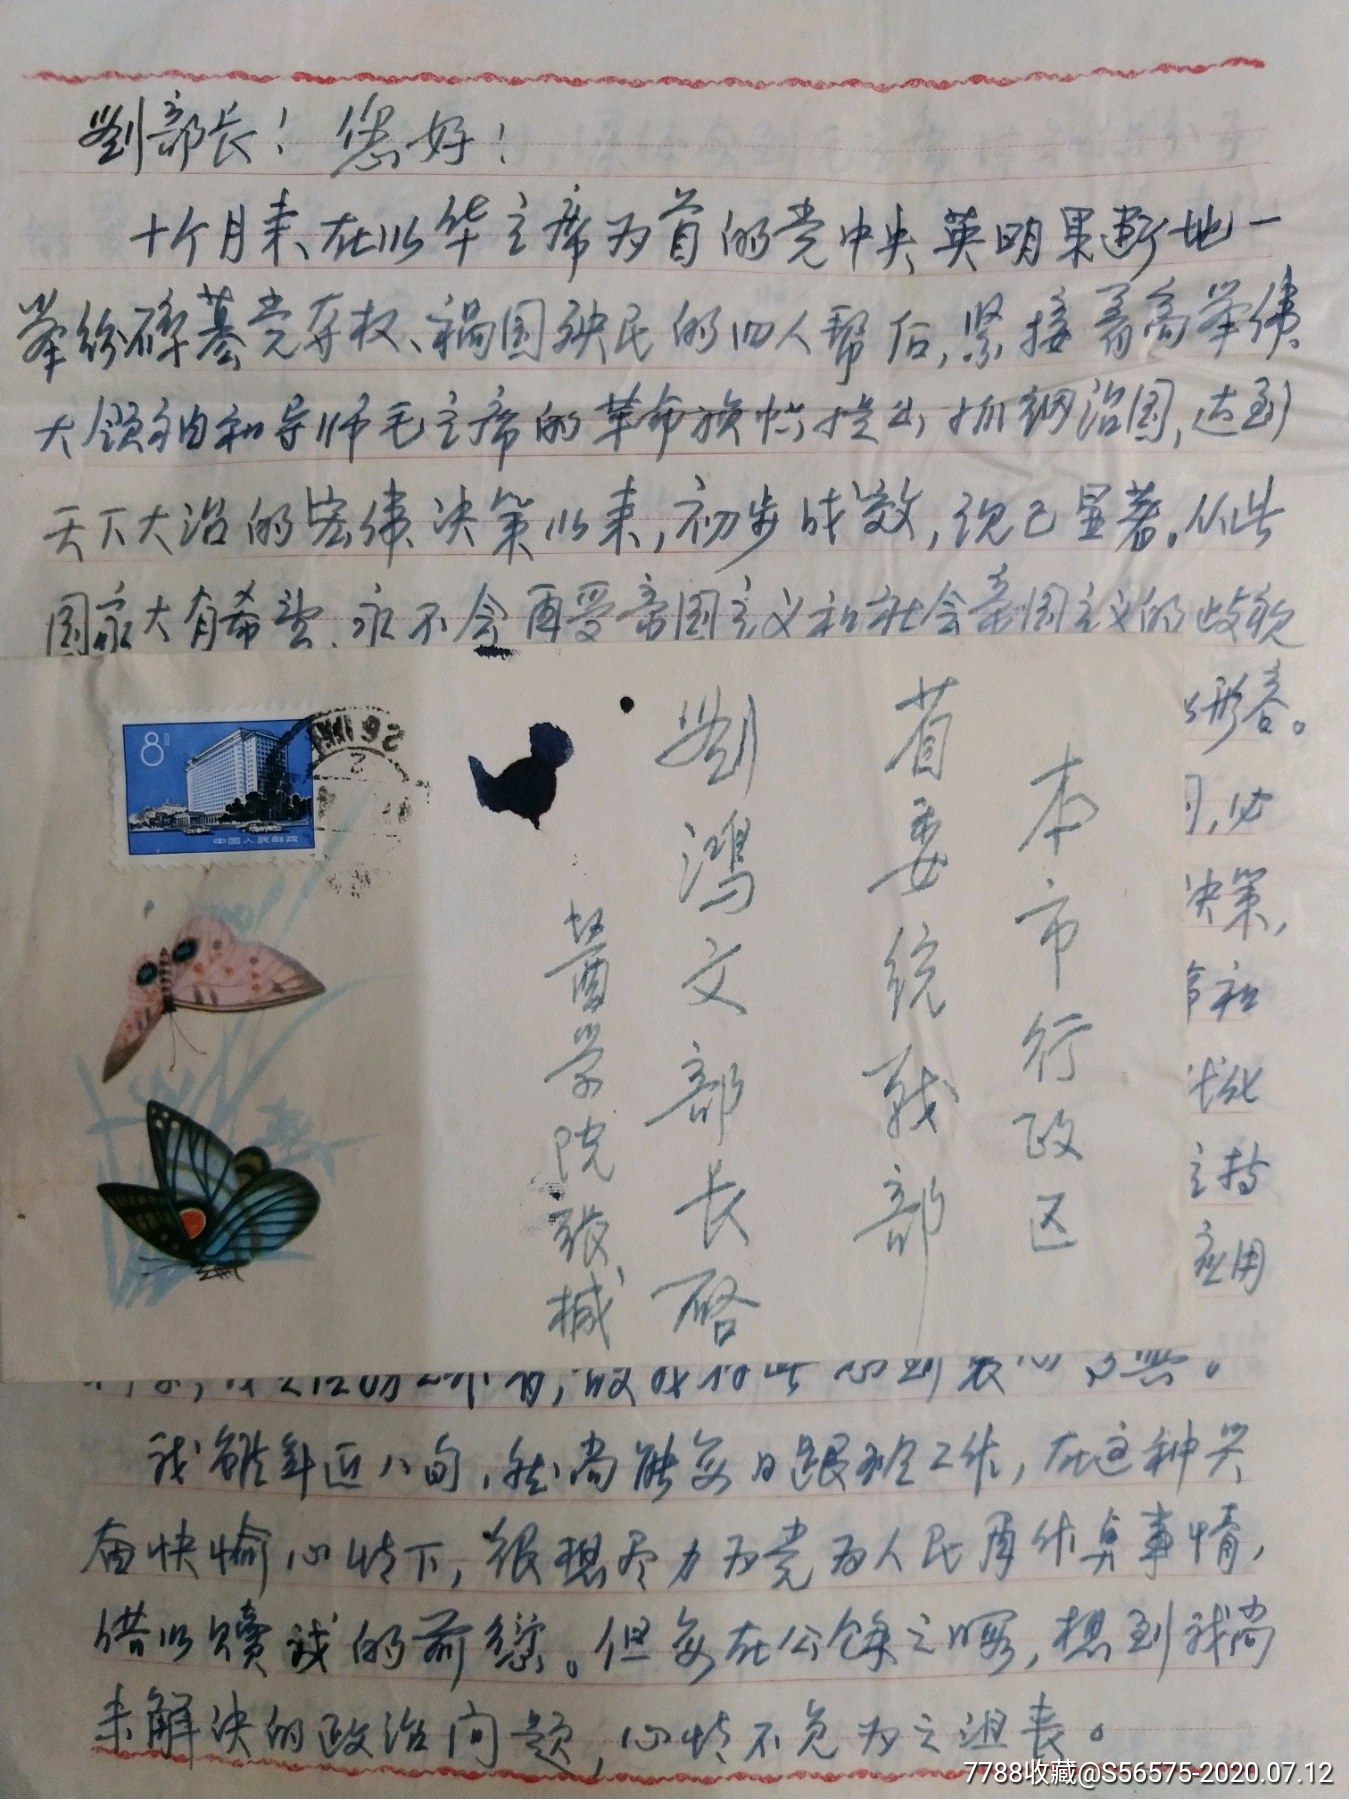 劉部长！您好！
十个月来、在以华主席为首的党中央英明果断地一
举粉碎篡党夺权、祸国殃民的四人帮后，紧接着高举伟
大领袖和导师毛主席的革命旗帜，提出抓纲治国，达到
天下大治的宏伟决策以来，初步成效，现已显著。从此
国家大有希望、永不会再受帝国主义和社会帝国主义的
形容。
必
决策，
和
主持
应用
8
中国人民邮政
本市行政区
省委统战部
劉鸿文部长启
医学院张棫
我虽年近八旬，然尚能每日跟班工作，在这种兴
奋快愉心情下，很想尽力为党为人民再作点事情，
借以赎我的前愆。但每在公余之暇，想到我尚
未解决的政治问题，心情不免为之沮丧。
7788收藏@S56575-2020.07.12